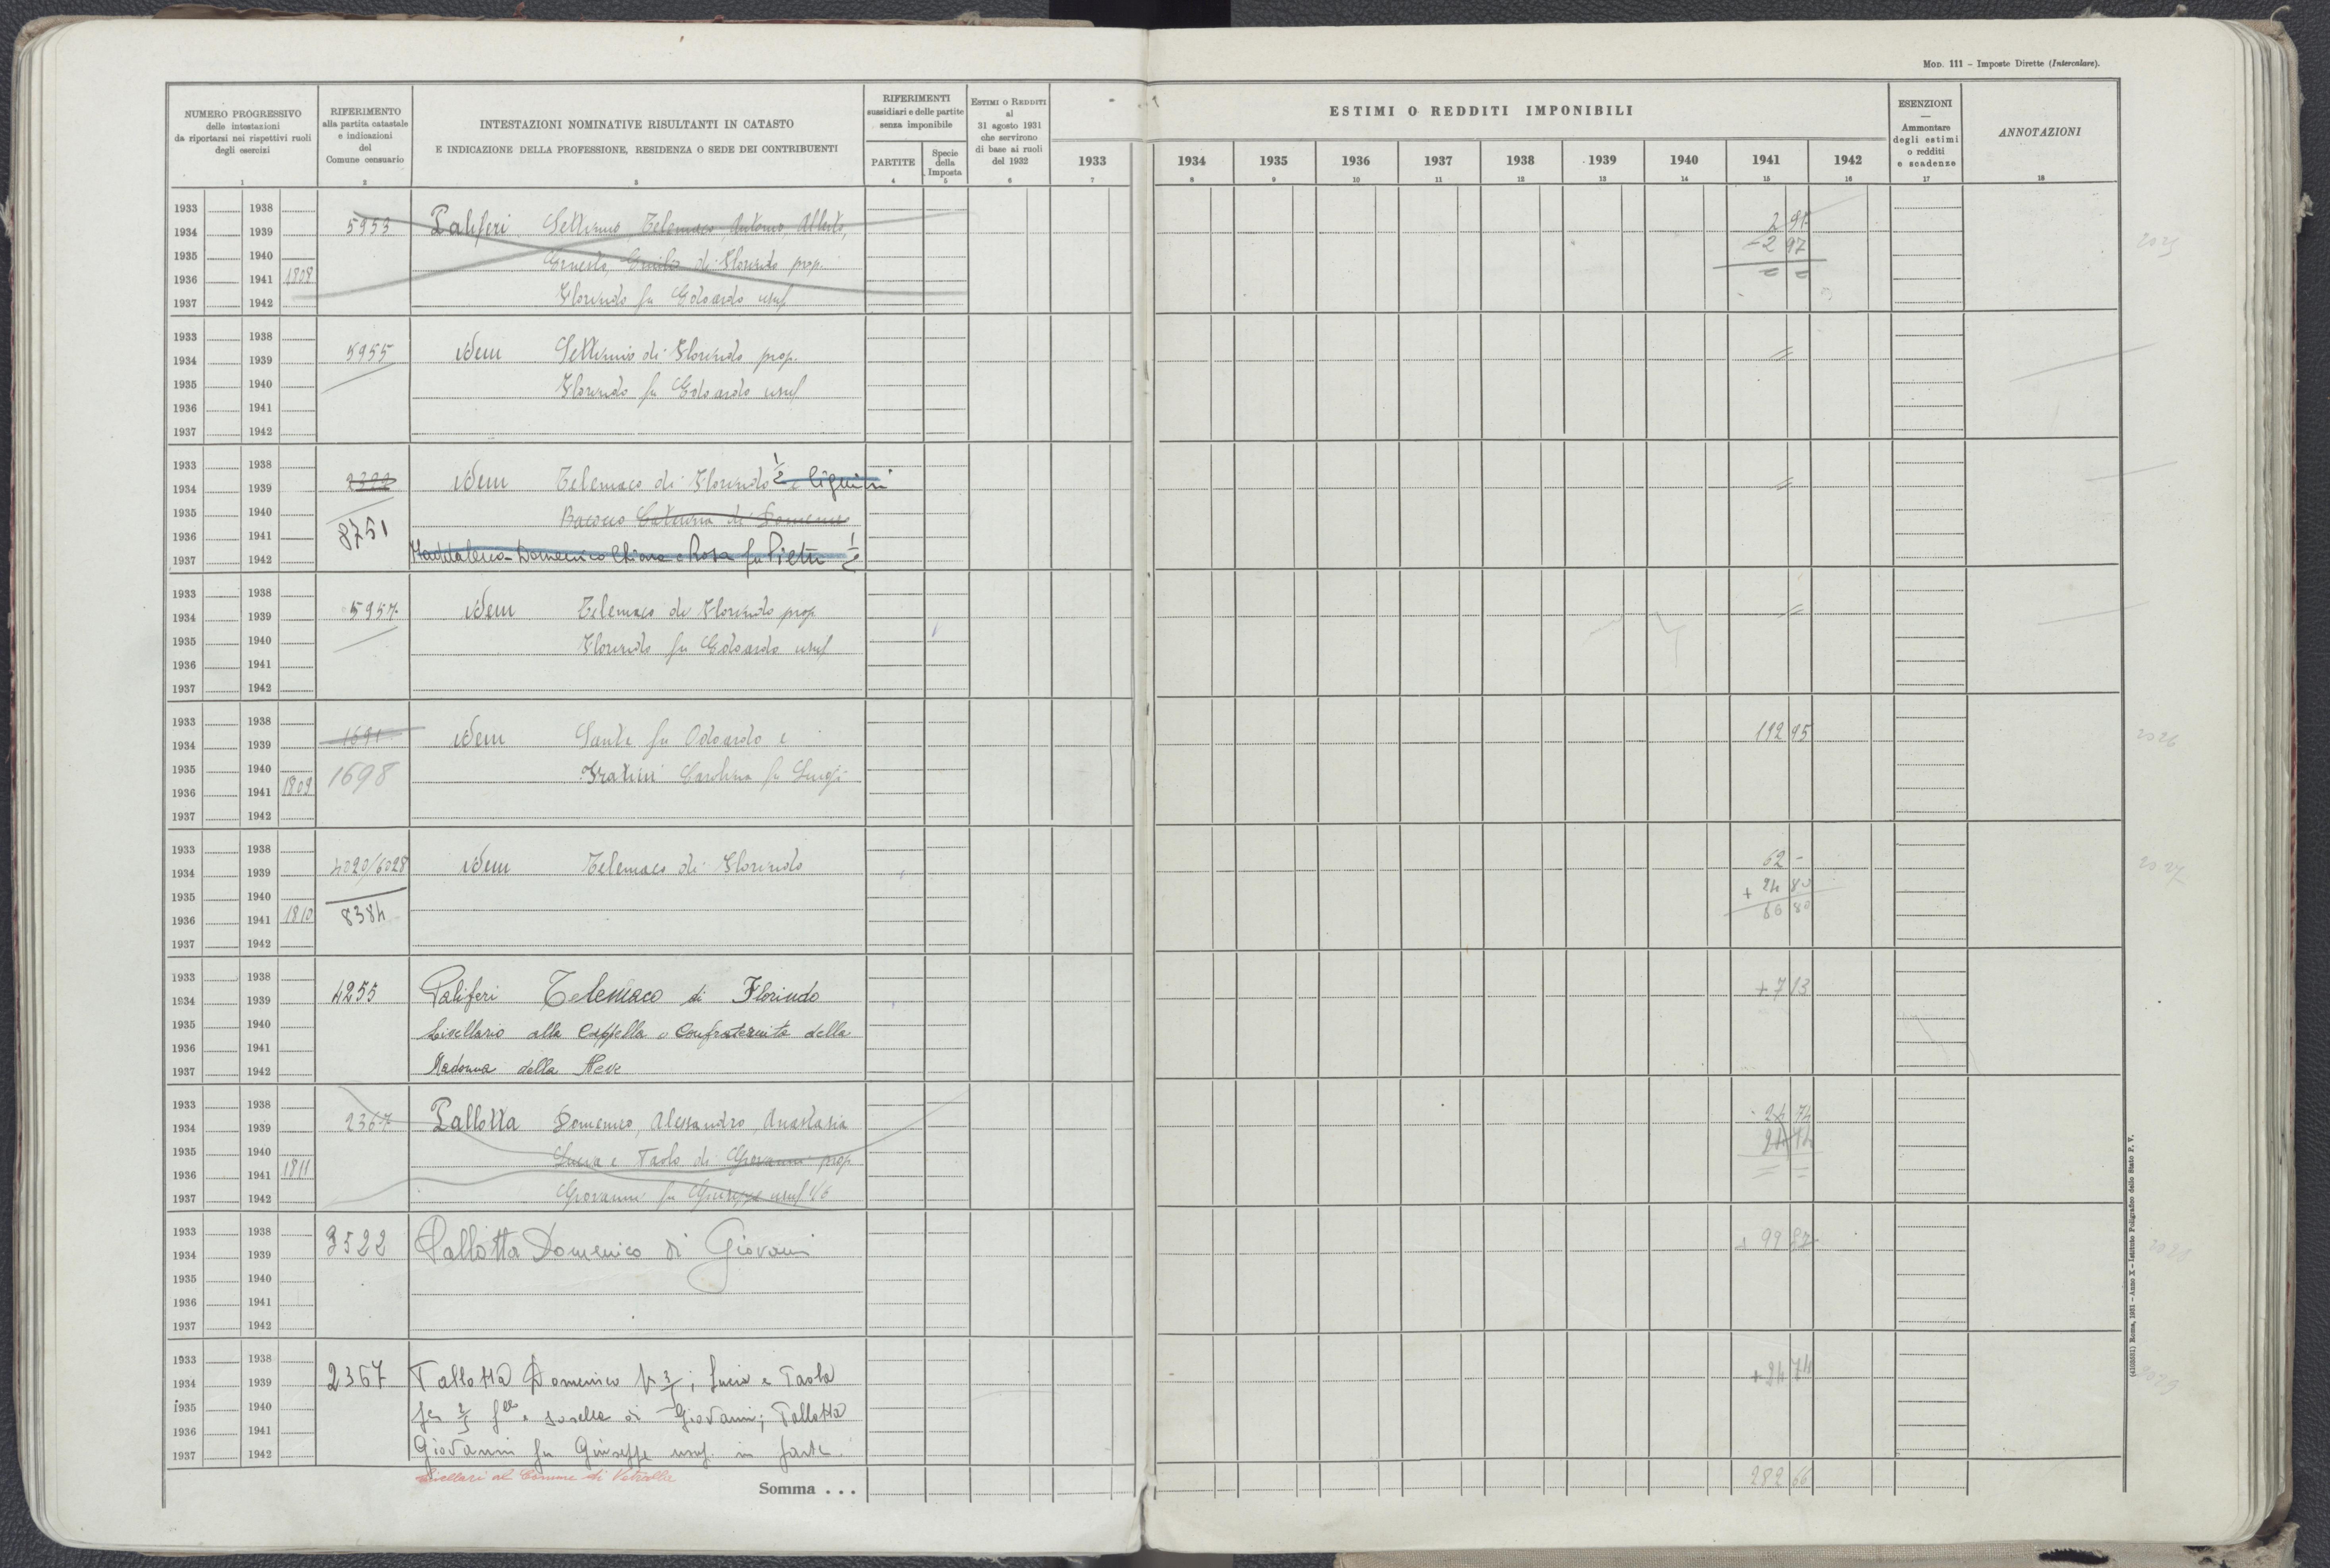 MOD. 111 – Imposte Dirette (Intercalare).
NUMERO PROGRESSIVO
delle intestazioni
da riportarsi nei rispettivi ruoli
degli esercizi
RIFERIMENTO
alla partita catastale
e indicazioni
del
Comune censuario
INTESTAZIONI NOMINATIVE RISULTANTI IN CATASTO
E INDICAZIONE DELLA PROFESSIONE, RESIDENZA O SEDE DEI CONTRIBUENTI
RIFERIMENTI
sussidiari e delle partite
senza imponibile
PARTITE
Specie
della
Imposta
ESTIMI O REDDITI
al
31 agosto 1931
che servirono
di base ai ruoli
del 1932
ESTIMI O REDDITI IMPONIBILI
1933 1934 1935 1936 1937 1938 1939 1940 1941 1942
ESENZIONI
Ammontare
degli estimi
o redditi
e scadenze
ANNOTAZIONI
1 2 3 4 5 6 7 8 9 10 11 12 13 14 15 16 17 18
1933 1938
1934 1939 5953 Paliferi Settimio, Telemaco, Antonio, Alberto, 2 97
1935 1940 Ernesto, Emilia di Florindo prop. – 2 97
1936 1941 1808 = =
1937 1942 Florindo fu Edoardo usuf
1933 1938
1934 1939 5955 Idem Settimio di Florindo prop. =
1935 1940 Florindo fu Edoardo usuf
1936 1941
1937 1942
1933 1938
1934 1939 Idem Telemaco di Florindo 1/2 e =
1935 1940 Bacocco Caterina di Domenico
1936 1941 8751
1937 1942 Maddalena – Domenico Chiara e Rosa fu Pietro 1/2
1933 1938
1934 1939 5957 Idem Telemaco di Florindo prop =
1935 1940 Florindo fu Edoardo usuf
1936 1941
1937 1942
1933 1938
1934 1939 1691 Idem Sante fu Odoardo e 192 95 2026
1935 1940 1698 Carolina fu Luigi
1936 1941 1809
1937 1942
1933 1938
1934 1939 4020/6028 Idem Telemaco di Florindo 62 – 2027
1935 1940 + 24 80
1936 1941 1810 8384 86 80
1937 1942
1933 1938
1934 1939 4255 Paliferi Telemaco di Florindo + 7 13
1935 1940 Livellario alla Cappella e Confraternita della
1936 1941
1937 1942 Madonna della Neve
1933 1938
1934 1939 2367 Pallotta Domenico, Alessandro, Anastasia 24 74
1935 1940 Lucia e Paolo di Giovanni prop 24 74
1936 1941 1811 = =
1937 1942 Giovanni fu Giuseppe usuf 1/6
1933 1938
1934 1939 3522 Pallotta Domenico di Giovanni 2028
1935 1940
1936 1941
1937 1942
1933 1938
1934 1939 2367 Pallotta Domenico ; Lucia e Paola + 24 74 2029
1935 1940 sorella di Giovanni; Pallotta
1936 1941
1937 1942 Giovanni fu Giuseppe usuf. in parte.
Livellari al Comune di Vetralla
Somma . . . 282 66
(4103681) Roma, 1931 – Anno X – Istituto Poligrafico dello Stato P. V.